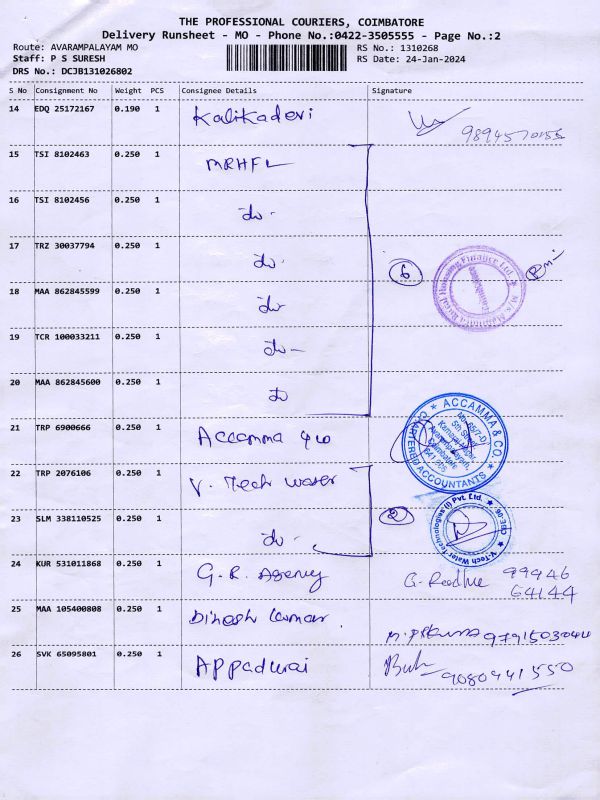 THE PROFESSIONAL COURIERS, COIMBATORE
Delivery Runsheet - MO - Phone No.:0422-3505555 - Page No.:2
Route: AVARAMPALAYAM MO
RS No.: 1310268
Staff: P S SURESH
RS Date: 24-Jan-2024
DRS No.: DCJB131026802
S No Consignment No Weight PCS Consignee Details Signature
14 EDQ 25172167 0.190 1 Kalikadevi
9894570155
15 TSI 8102463 0.250 1 MRHFL
16 TSI 8102456 0.250 1 do-
17 TRZ 30037794 0.250 1 do- 6
18 MAA 862845599 0.250 1 do
19 TCR 100033211 0.250 1 do-
20 MAA 862845600 0.250 1 do
21 TRP 6900666 0.250 1 Accamma & co
ACCAMMA & CO.
CHARTERED ACCOUNTANTS
22 TRP 2076106 0.250 1 V. Tech water
23 SLM 338110525 0.250 1 do- 2
V-Tech Water Technologies (I) Pvt. Ltd.
24 KUR 531011868 0.250 1 G.R. Agency 99946
64144
25 MAA 105400808 0.250 1 Dinesh kumar. 9791503044
26 SVK 65095801 0.250 1 Appadurai
9080941550